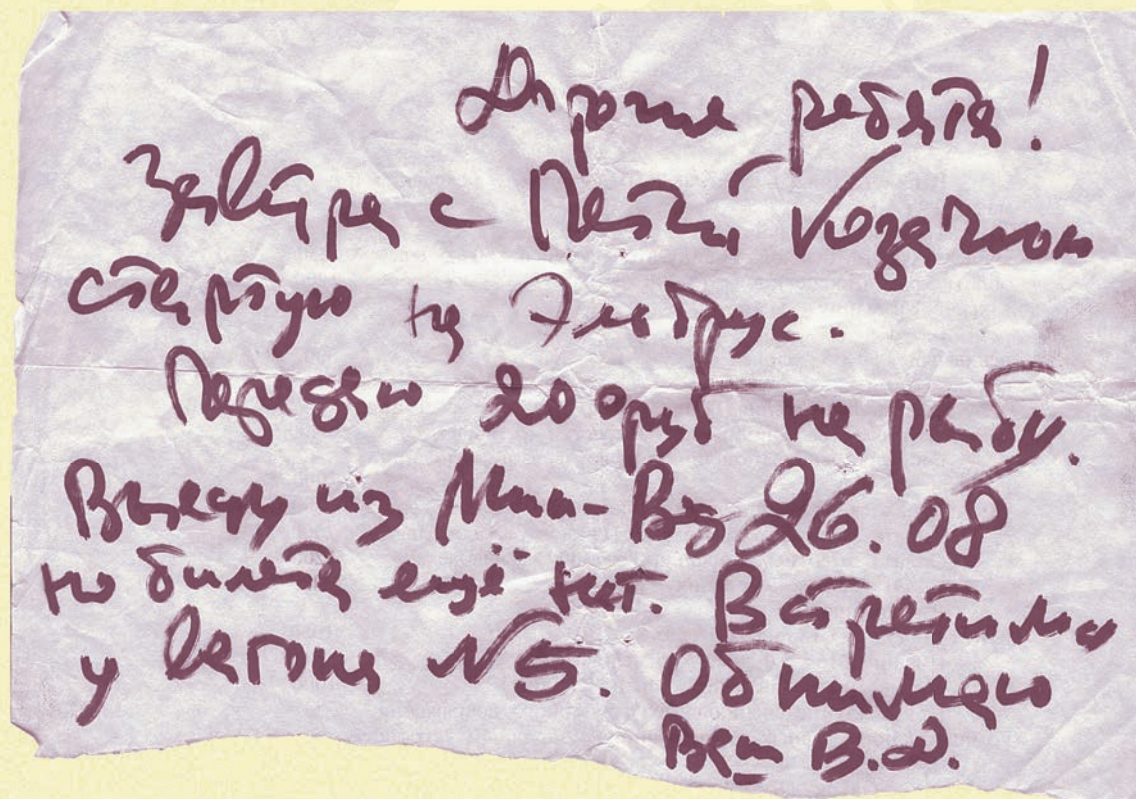 Дорогие ребята!
Завтра с Петей Козачком
стартую на Эльбрус.
Передаю 200 руб на рыбу.
Выеду из Мин-Вод 26.08
но билета ещё нет. Встретимся
у вагона №5. Обнимаю
Ваш В.Д.